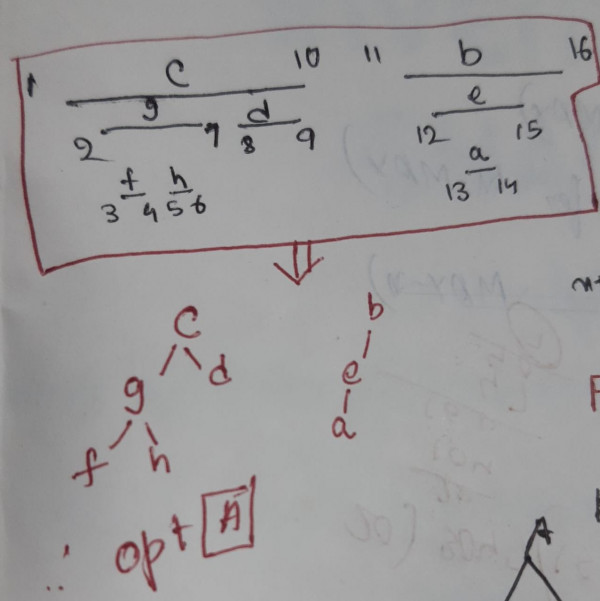 1 C 10 11 b 16
2 g 7 8 d 9 12 e 15
3 f 4 5 h 6 13 a 14
C b
g d e
f h a
∴ opt A
A